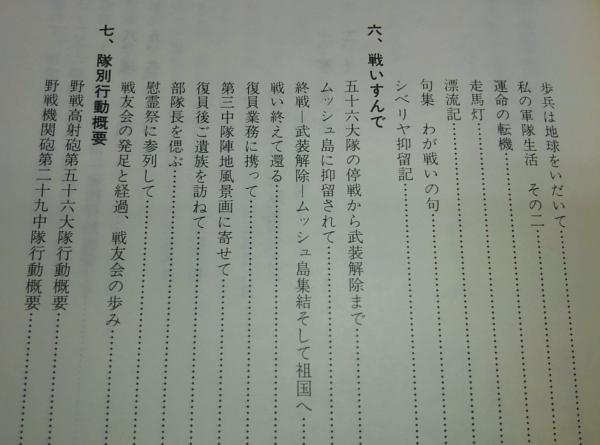 歩兵は地球をいだいて
私の軍隊生活 その二
運命の転機
走馬灯
漂流記
句集 わが戦いの句
シベリヤ抑留記
六、戦いすんで
五十六大隊の停戦から武装解除まで
ムッシュ島に抑留されて
終戦―武装解除―ムッシュ島集結そして祖国へ
戦い終えて還る
復員業務に携って
第三中隊陣地風景画に寄せて
復員後ご遺族を訪ねて
部隊長を偲ぶ
慰霊祭に参列して
戦友会の発足と経過、戦友会の歩み
七、隊別行動概要
野戦高射砲第五十六大隊行動概要
野戦機関砲第二十九中隊行動概要